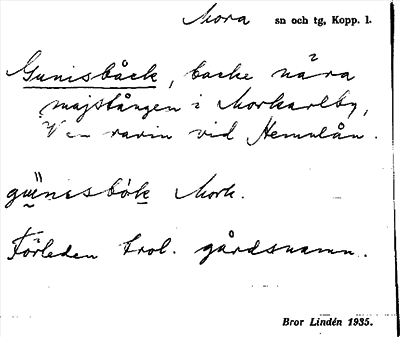 Mora sn och tg, Kopp. l.
Gunisbäck, backe nära
majstången i Morkarlby,
V en ravin vid Hemulån.
Mork.
Förleden trol. gårdsnamn.
Bror Lindén 1935.